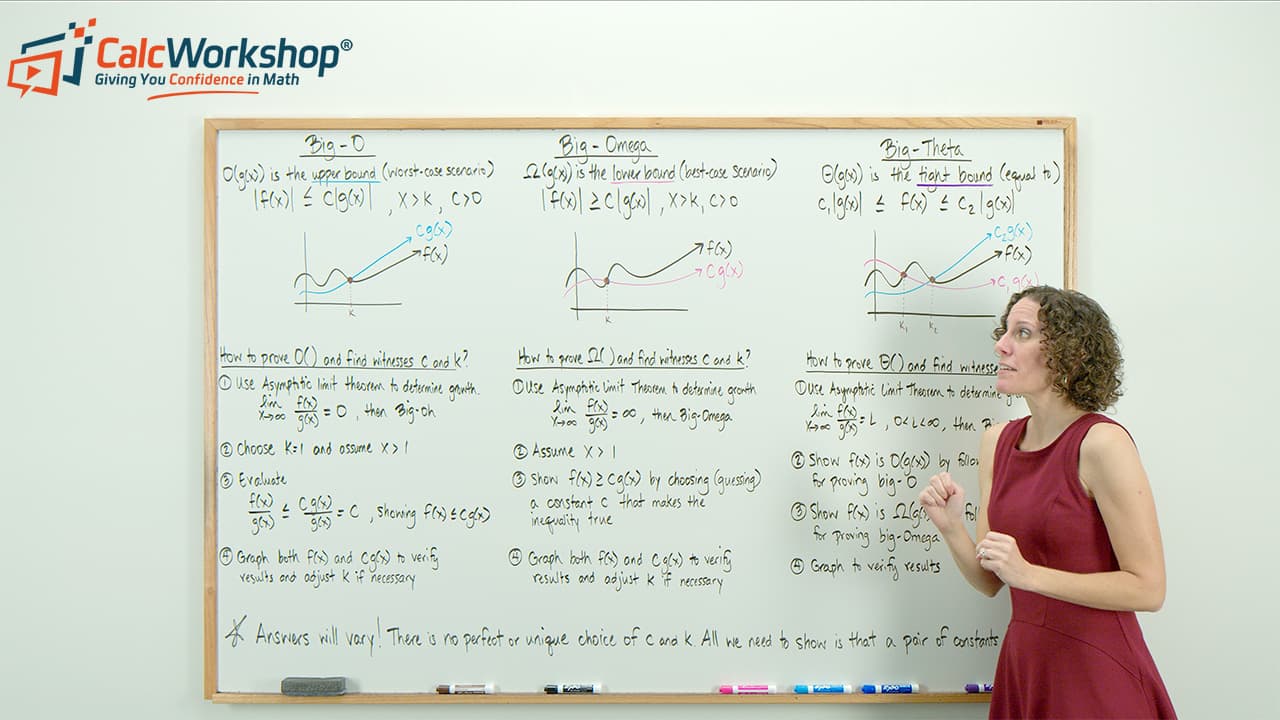 CalcWorkshop®
Giving You Confidence in Math
Big-O
O(g(x)) is the upper bound (worst-case scenario)
|f(x)| ≤ C|g(x)| , X>K, C>0
Cg(x)
f(x)
K
How to prove O( ) and find witnesses C and K?
① Use Asymptotic limit theorem to determine growth.
lim x→∞ f(x)/g(x) = 0 , then Big-oh
② Choose K=1 and assume X>1
③ Evaluate
f(x)/g(x) ≤ Cg(x)/g(x) = C , showing f(x) ≤ Cg(x)
④ Graph both f(x) and Cg(x) to verify
results and adjust K if necessary
Big-Omega
Ω(g(x)) is the lower bound (best-case scenario)
|f(x)| ≥ C|g(x)| , X>K, C>0
f(x)
Cg(x)
K
How to prove Ω( ) and find witnesses C and K?
① Use Asymptotic Limit Theorem to determine growth
lim x→∞ f(x)/g(x) = ∞, then Big-Omega
② Assume X>1
③ Show f(x) ≥ Cg(x) by choosing (guessing)
a constant C that makes the
inequality true
④ Graph both f(x) and Cg(x) to verify
results and adjust K if necessary
Big-Theta
Θ(g(x)) is the tight bound (equal to)
C₁|g(x)| ≤ f(x) ≤ C₂|g(x)|
C₂g(x)
f(x)
C₁g(x)
K₁ K₂
How to prove Θ( ) and find witnesse
① Use Asymptotic Limit Theorem to determine
lim x→∞ f(x)/g(x) = L , 0<L<∞, then
② Show f(x) is O(g(x)) by
for proving big-O
③ Show f(x) is Ω(g(x)
for proving big-Omega
④ Graph to verify results
* Answers will vary! There is no perfect or unique choice of C and K. All we need to show is that a pair of constants